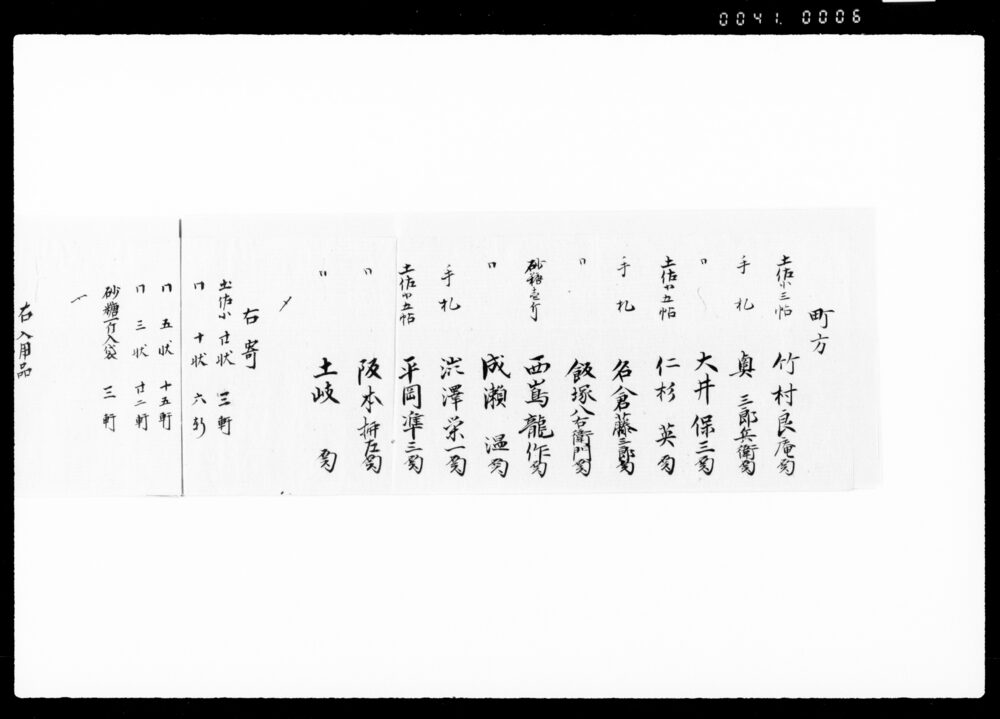 0041. 0006
町方
土佐小三帖 竹村良庵殿
手札 奥三郎兵衛殿
〃 大井保三殿
土佐小五帖 仁杉英殿
手札 名倉藤三郎殿
〃 飯塚八右衛門殿
砂糖壱斤 西嶌龍作殿
〃 成瀬温殿
手札 渋澤栄一殿
土佐小五帖 平岡準三殿
〃 阪本 殿
〃 土岐 殿
右寄
土佐小 廿状 三軒
〃 十状 六軒
〃 五状 十五軒
〃 三状 廿二軒
砂糖 入袋 三軒
右入用品